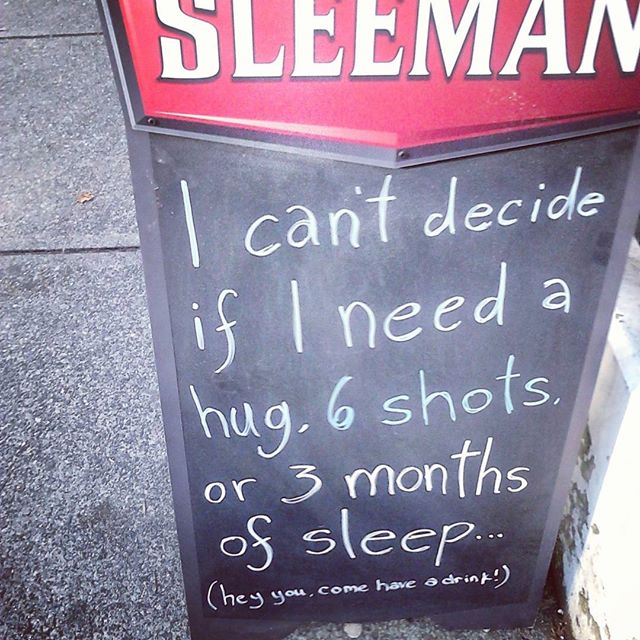 SLEEMAN
I can't decide
if I need a
hug, 6 shots,
or 3 months
of sleep...
(hey you, come have a drink!)